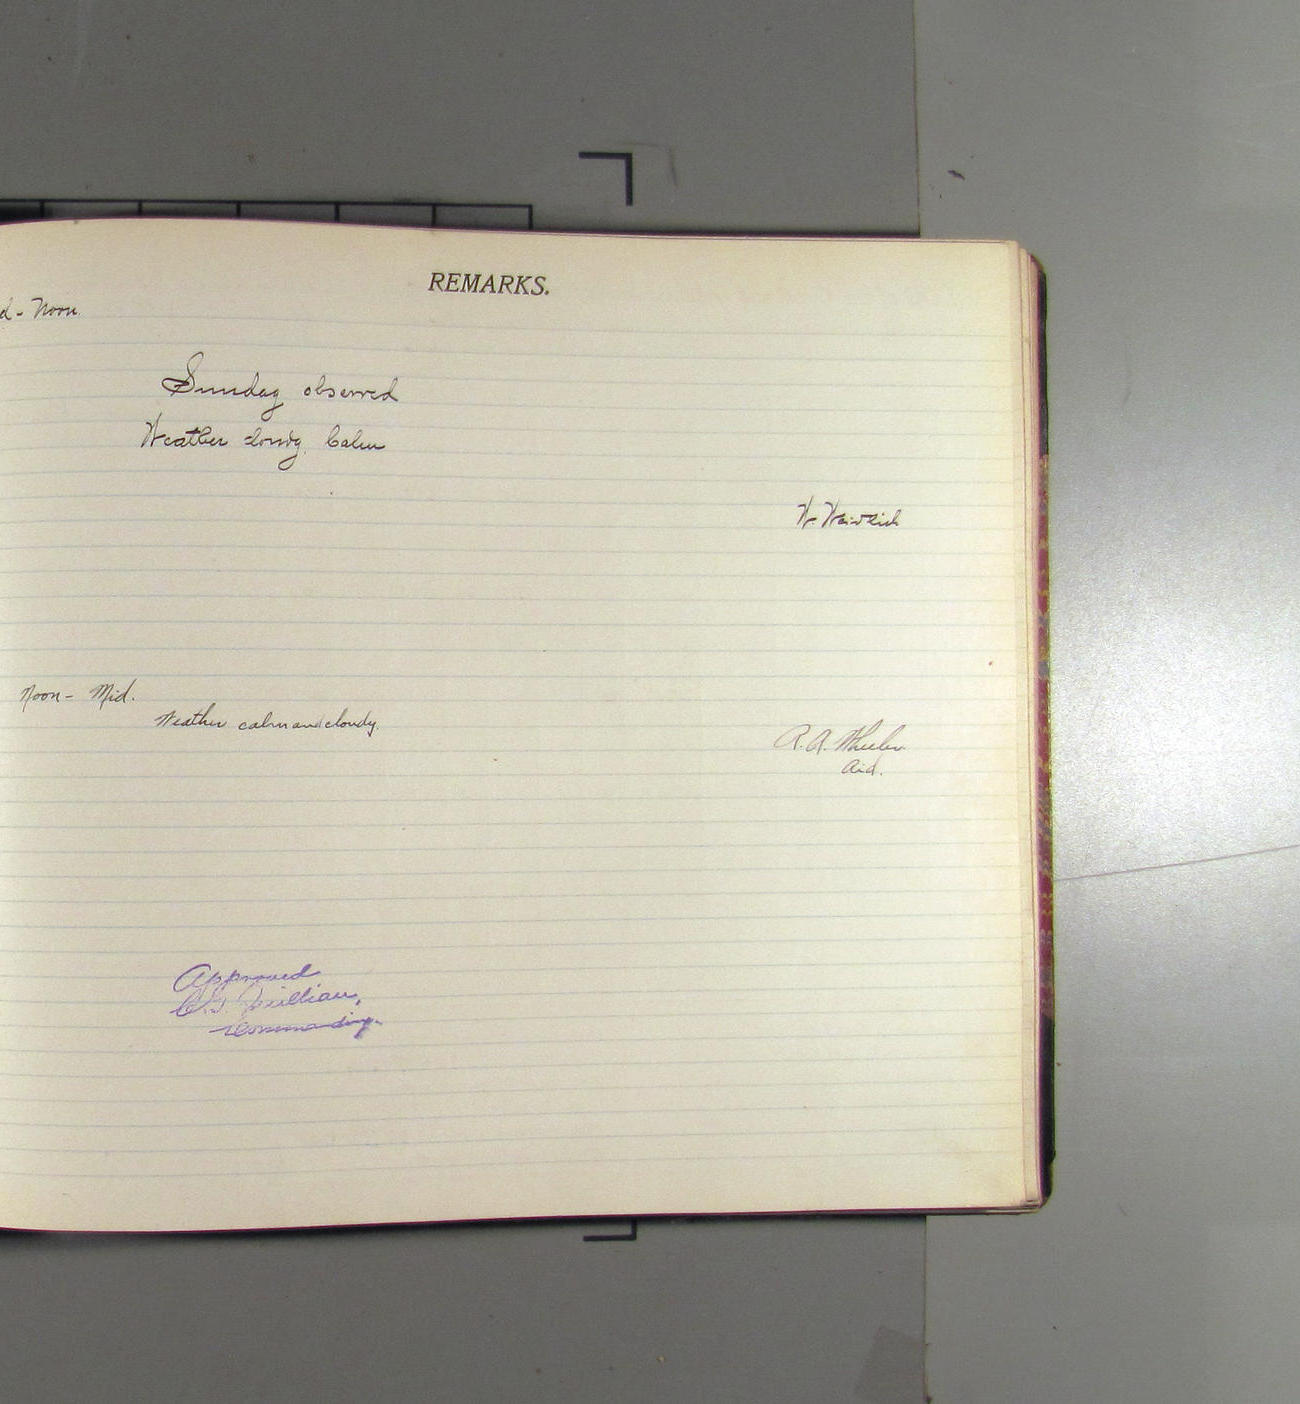 REMARKS.
d - Noon.
Sunday observed
Weather cloudy. Calm
W. Weidlich
Noon - Mid.
Weather calm and cloudy.
R. A. Wheeler.
Aid.
Approved
C. G. Quillian,
Commanding.